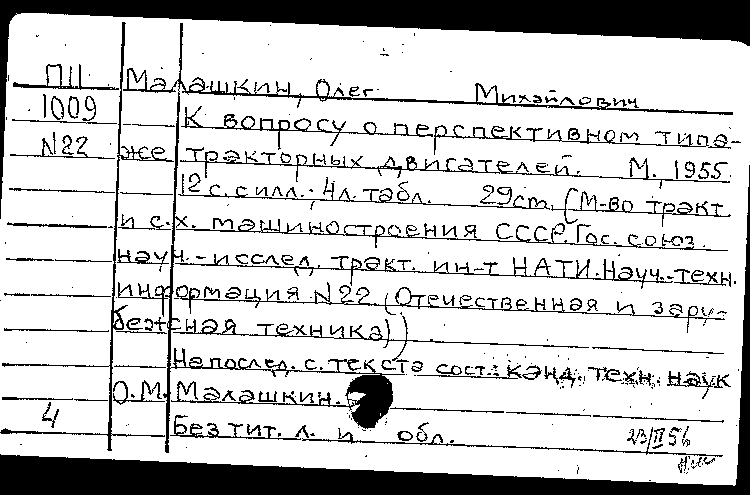 П11 Малашкин, Олег Михайлович
1009 К вопросу о перспективном типа-
N22 же тракторных двигателей. М., 1955.
12 с. с илл.; 4л. табл. 29см. (М-во тракт.
и с.х. машиностроения СССР. Гос. союз.
науч.-исслед. тракт. ин-т НАТИ. Науч.-техн.
информация N22. (Отечественная и зару-
бежная техника))
На послед. с. текста сост.: канд. техн. наук
О.М. Малашкин.
4 Без тит. л. и обл. 23/II 56